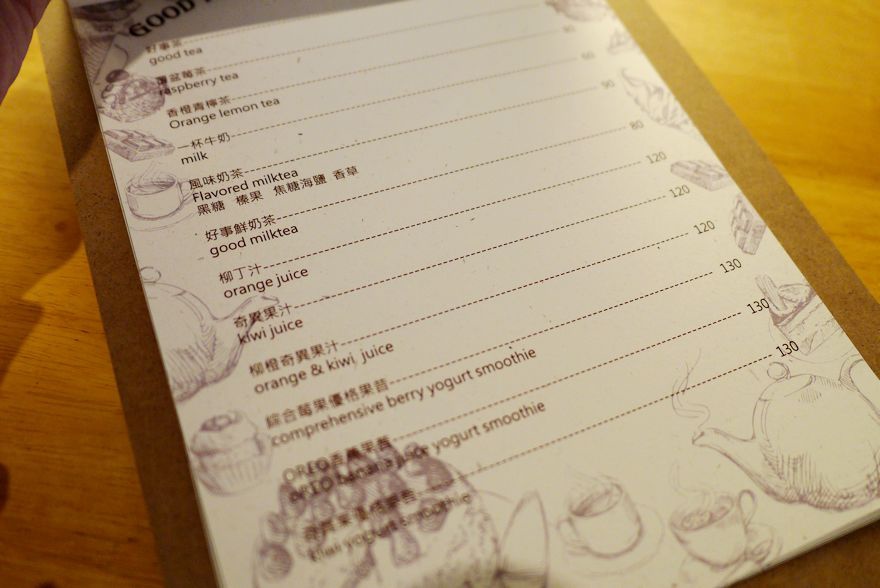 GOOD
好事茶
good tea
覆盆莓茶
raspberry tea
香橙青檸茶
Orange lemon tea
一杯牛奶 90
milk
風味奶茶 80
Flavored milktea
黑糖 榛果 焦糖海鹽 香草
好事鮮奶茶 120
good milktea
柳丁汁 120
orange juice
奇異果汁 120
kiwi juice
柳橙奇異果汁 130
orange & kiwi juice
綜合莓果優格果昔 130
comprehensive berry yogurt smoothie
OREO 130
OREO banana yogurt smoothie
kiwi yogurt smoothie